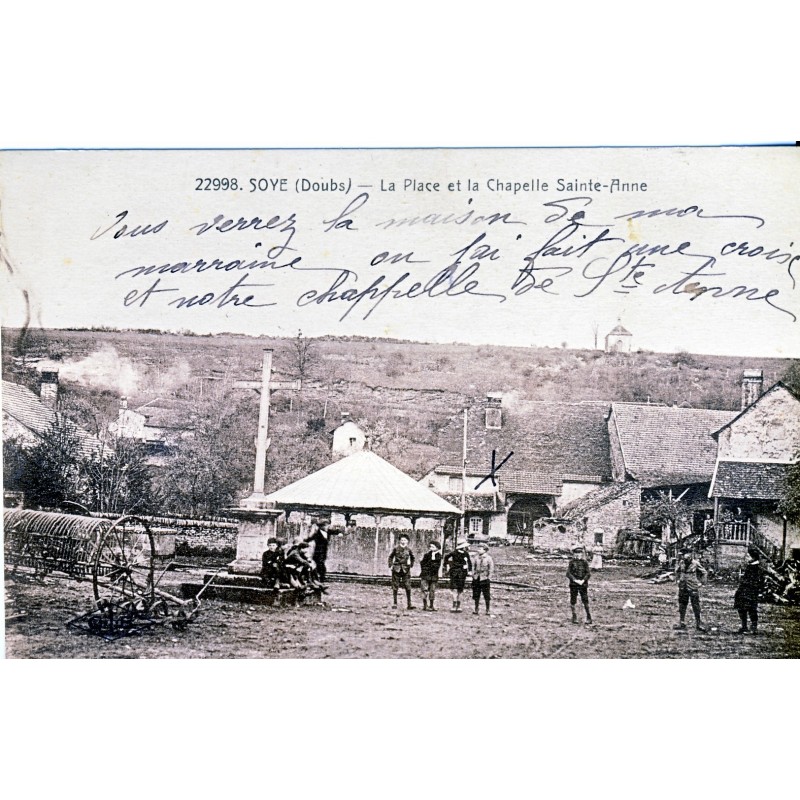 22998. SOYE (Doubs) — La Place et la Chapelle Sainte-Anne
Vous verrez la maison de ma
marraine ou j'ai fait une croix
et notre chapelle de Ste Anne
X